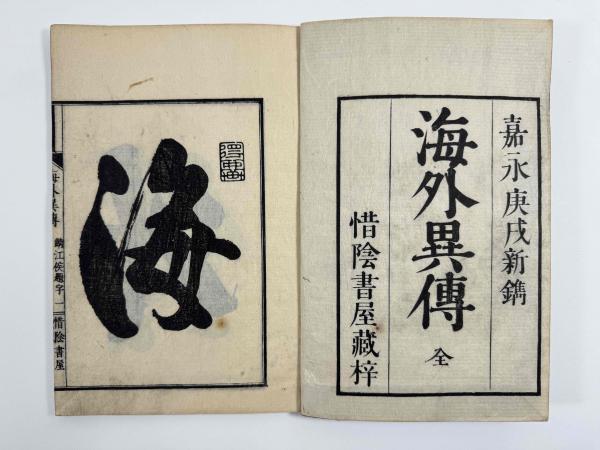 嘉永庚戌新鐫
海外異傳
全
惜陰書屋藏梓
海
海外異傳
鯖江侯題字
一
惜陰書屋